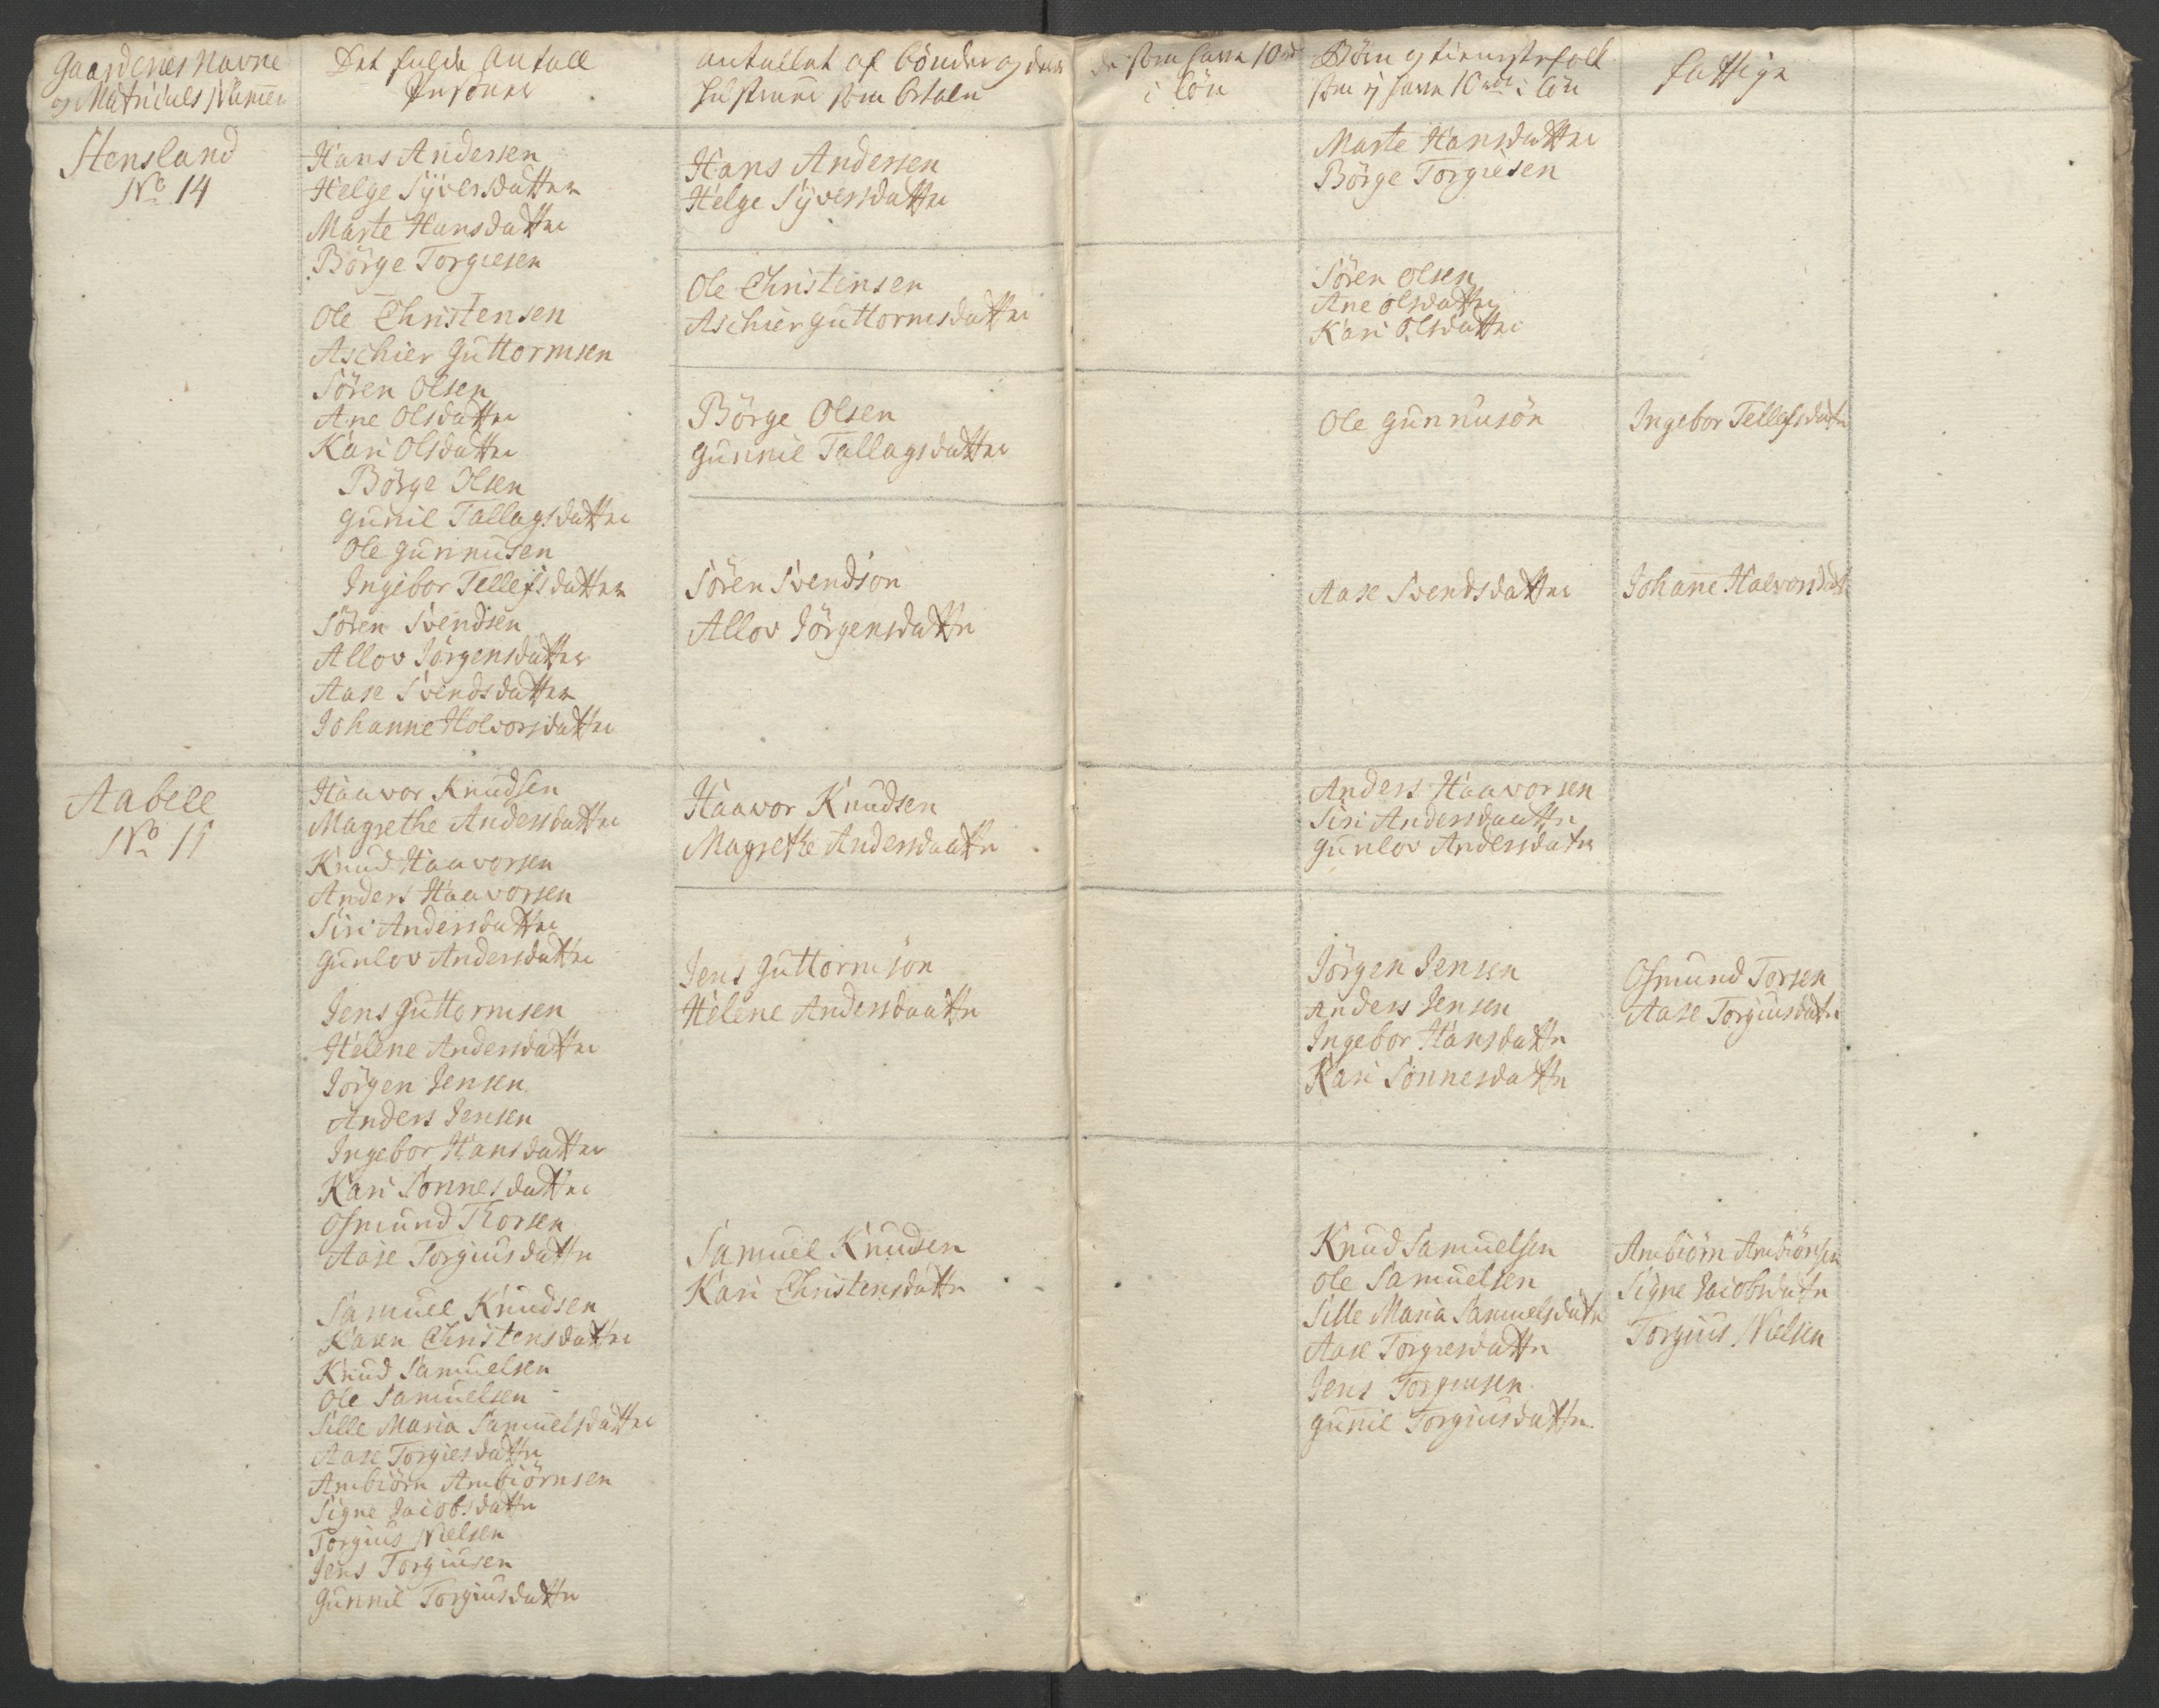 Gaardenes Navne
og Matriculs Numer
Det fulde Antall
Personer
antallet af bönder og deres
Hustruer som betaler
de som have 10 rd
i lön
Börn og tienestefolck
som ej have 10 rdl i lön
fattige
Stensland
No 14
Hans Andersen
Helge Syversdatter
Marte Hansdatter
Börge Torgiesen
Ole Christensen
Aschier Guttormsen
Sören Olsen
Ane Olsdatter
Kari Olsdatter
Börge Olsen
Gunil Tallagsdatter
Ole Gunnusen
Ingebor Tellefsdatter
Sören Svendsen
Allov Jörgensdatter
Aase Svendsdatter
Johanne Holvorsdatter
Hans Andersen
Helge Syversdatter
Ole Christensen
Aschier Guttormsdatter
Börge Olsen
Gunnil Tallagsdatter
Sören Svendson
Allov Jörgensdatter
Marte Hansdatter
Börge Torgiesen
Sören Olsen
Ane Olsdatter
Kari Olsdatter
Ole Gunnusön
Aase Svendsdatter
Ingebor Tellefsdatr
Johane Halvorsdatr
Aabell
No 15
Haavor Knudsen
Magrethe Andersdatter
Knud Haavorsen
Anders Haavorsen
Siri Andersdatter
Gunlov Andersdatter
Jens Guttormsen
Helene Andersdatter
Jörgen Jensen
Anders Jensen
Ingebor Hansdatter
Kari Sonnesdatter
Osmund Thorsen
Aase Torgiusdattr
Samuel Knudsen
Karen Christensdatter
Knud Samuelsen
Ole Samuelsen
Sille Maria Samuelsdatter
Aase Torgiesdattr
Ambiörn Ambiörnsen
Signe Jacobsdattr
Torgius Nielsen
Jens Torgiusen
Gunnil Torgiusdattr
Haavor Knudsen
Magrethe Andersdaattr
Jens Guttormsön
Helene Andersdaattr
Samuel Knudsen
Kari Christensdattr
Anders Haavorsen
Siri Andersdaattr
Gunlov Andersdatr
Jörgen Jensen
Anders Jensen
Ingebor Hansdattr
Kari Sonnesdattr
Knud Samuelsen
Ole Samuelsen
Sille Maria Samuelsdatr
Aase Torgiesdattr
Jens Torgiusen
Gunil Torgiusdattr
Osmund Torsen
Aase Torgiusdatr
Ambiörn Ambiörnsen
Signe Jacobsdatr
Torgius Nielsen